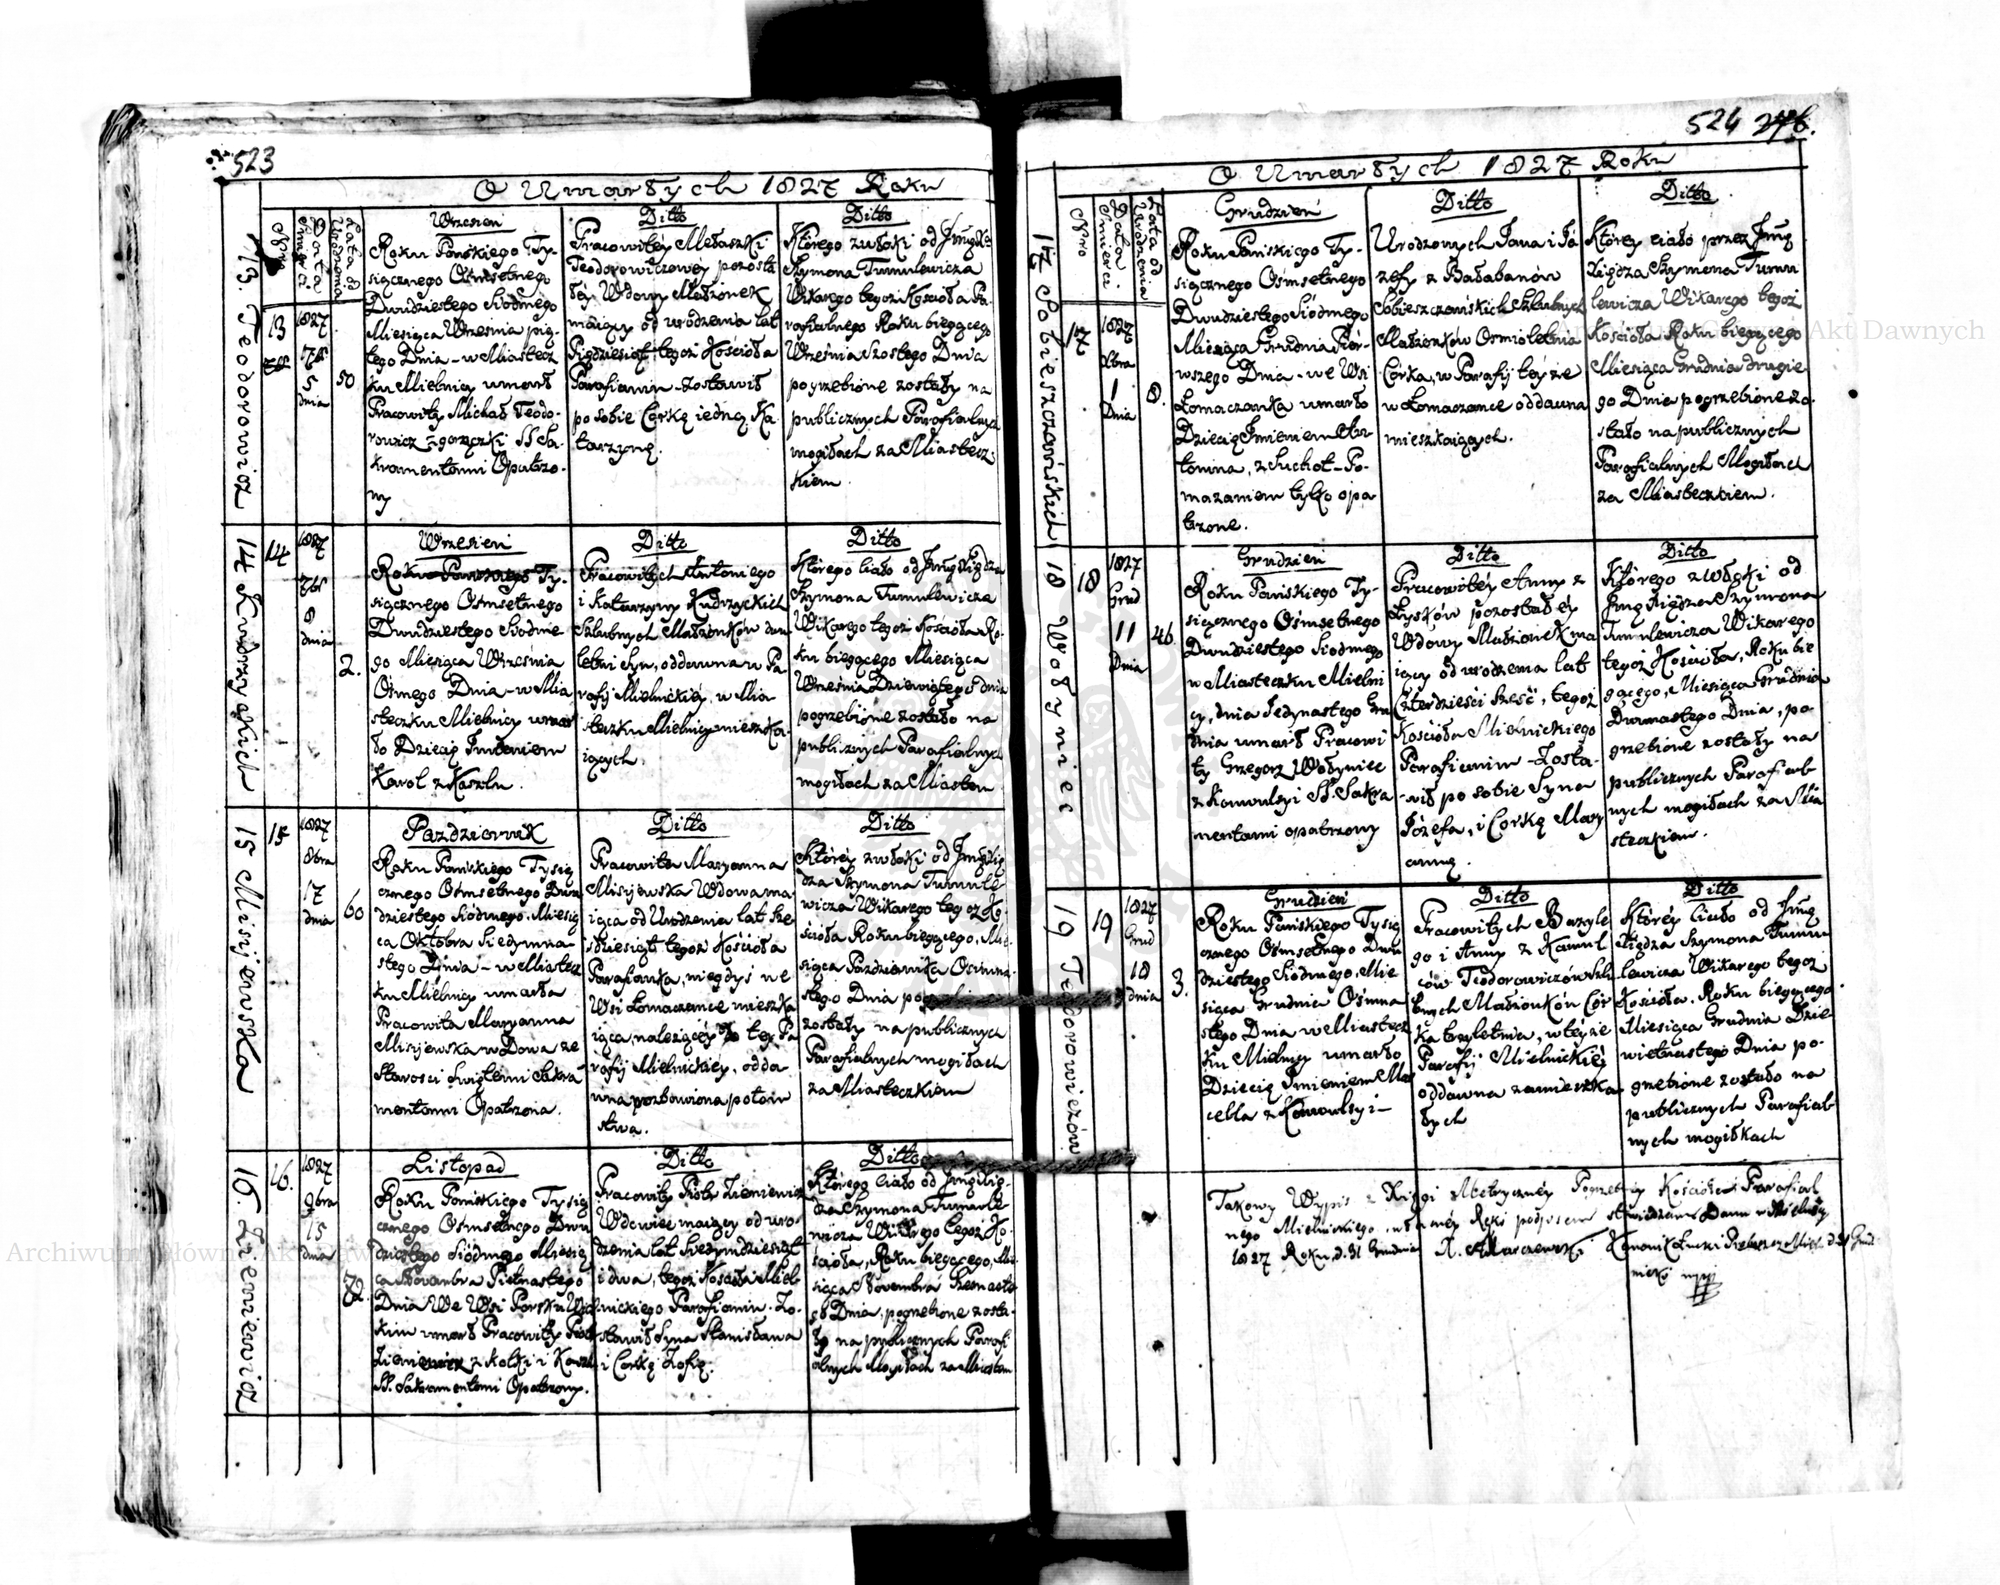 523
O Umarłych 1827 Roku
Nro
Data Śmierci
Lata od Urodzenia
13. Teodorowicz
13
1827
7br
5
dnia
50
Wrzesień
Roku Pańskiego Ty-
siącznego Ośmsetnego
Dwudziestego Siódmego
Miesiąca Września pią-
tego Dnia - w Miastecz
ku Mielnicy umarł
Pracowity Michał Teodo-
rowicz z gorączki SS Sa-
kramentami Opatrzo-
ny
Ditto
Pracowitey
Teodorowiczowey pozosta
łey Wdowy Małżonek
maiący od urodzenia lat
Pięćdziesiąt tegoż Kościoła
Parafianin - Zostawił
po sobie Corkę iedną Ka
tarzynę.
Ditto
Którego zwłoki od Jmg Xa
Szymona Tumulewicza
Wikarego tegoż Kościoła Pa-
rafialnego Roku bieącego
Września Szostego Dnia
pogrzebione zostały na
publicznych Parafialnych
mogiłach za Miastecz-
kiem.
14 Kudrzyckich
14
1827
7br
8
dnia
2.
Wrzesień
Roku Pańskiego Ty-
siącznego Ośmsetnego
Dwudziestego Siodme
go Miesiąca Września
Ośmego Dnia - w Mia
steczku Mielnicy umar
ło Dziecię Imieniem
Karol z Kaszlu.
Ditto
Pracowitych Antoniego
i Katarzyny Kudrzyckich
Szlubnych Małżonków dwu
letni Syn, oddawna w Pa
rafij Mielnickiéy, w Mia
steczku Mielnicy mieszka-
iących
Ditto
Którego ciało od Jmg Xiędza
Szymona Tumulewicza
Wikarego tegoż Kościoła Ro-
ku biegącego Miesiąca
Września Dziewiątego dnia
pogrzebione zostało na
publicznych Parafialnych
mogiłach za Miastem
15 Misijewska
15
1827
8bra
17
dnia
60
Pazdziernik
Roku Pańskiego Tysią
cznego Ośmsetnego Dwu
dziestego Siódmego Miesią
ca Oktobra Siedymna-
stego Dnia - w Miastecz
ku Mielnicy umarła
Pracowita Maryanna
Misijewska wDowa ze
Starosci Świętemi Sakra
mentami Opatrzona.
Ditto
Pracowita Maryanna
Misijewska Wdowa ma
iąca od Urodzenia lat Sze
sdziesiąt tegoż Kościoła
Parafianka, niegdyś we
Wsi Łomaczance mieszka
iąca, należącéy do tey Pa
rafij Mielnickiey, odda
wna pozbawiona potom
stwa.
Ditto
Któréy zwłoki od Jmg Xię
dza Szymona Tumule
wicza Wikarego tegoż Ko-
ścioła Roku biegącego, Mie-
siąca Pazdziernika Osiemna-
stego Dnia
zostały na publicznych
Parafialnych mogiłach
za Miasteczkiem
16. Zieniewicz
16.
1827
9bra
15
dnia
72.
Listopad
Roku Pańskiego Tysią
cznego Ośmsetnego Dwu
dziestego Siódmego Miesią
ca Novembra Pietnastego
Dnia We Wsi
kim umarł Pracowity Piotr
Zieniewicz z Kolki i Kaszlu
SS. Sakramentami Opatrzony.
Ditto
Pracowity Piotr Zieniewicz
Wdowiec maiący od uro-
dzenia lat Siedymdziesiąt
i dwa, tegoż Kościoła Miel
nickiego Parafianin. Zo-
stawił Syna Stanisława
i Corkę Zofię.
Ditto
Którego ciało od Jmg Xię-
dza Szymona Tumule
wicza Wikarego tegoż Ko-
ścioła, Roku biegącego, Mie-
siąca Novembra Szesnaste
go Dnia, pogrzebione zosta-
ło na publicznych Parafi
alnych Mogiłach za Miastem
524 276.
O Umarłych 1827 Roku
Nro
Data Śmierci
Lata od Urodzenia
17 Sobieszczańskich
17
1827
Xbra
1
Dnia
8.
Grudzień
Roku Pańskiego Ty-
siącznego Ośmsetnego
Dwudziestego Siódmego
Miesiąca Grudnia Pier-
wszego Dnia - we Wsi
Łomaczanka umarło
Dziecię Imieniem An-
tonina, z Suchot - Po-
mazaniem tylko opa
trzone.
Ditto
Urodzonych Jana i Jó
zefy z Bałabanów
Sobieszczańskich Szlubnych
Małżonków Osmioletnia
Corka, w Parafij tey że
w Łomaczance oddawna
mieszkaiących.
Ditto
Którey ciało przez Jmg
Xiędza Szymona Tumu
lewicza Wikarego tegoż
Kościoła Roku biegącego
Miesiąca Grudnia drugie
go Dnia pogrzebione zo-
stało na publicznych
Parafialnych Mogiłach
za Miasteczkiem.
18 Wołyniec
18
1827
Grud
11
Dnia
46.
Grudzień
Roku Pańskiego Ty-
siącznego Ośmsetnego
Dwudziestego Siodmego
w Miasteczku Mielni
cy, dnia Jedynastego Gru
dnia umarł Pracowi
ty Grzegorz Wołyniec
z Konwulsyi SS Sakra
mentami opatrzony
Ditto
Pracowitéy Anny z
Łysków pozostałéy
Wdowy Małżonek ma
iący od urodzenia lat
Czterdzieści sześć, tegoż
Kościoła Mielnickiego
Parafianin - Zosta-
wił po sobie Syna
Józefa, i Corkę Mary
annę.
Ditto
Którego zwłoki od
Jmg Xiędza Szymona
Tumulewicza Wikarego
tegoż Kościoła, Roku bie
gącego, Miesiąca Grudnia
Dwunastego Dnia, po-
grzebione zostały na
publicznych Parafial
nych mogiłach za Mia
steczkiem.
19 Teodorowiczów
19
1827
Grud
18
dnia
3.
Grudzień
Roku Pańskiego Tysią
cznego Ośmsetnego Dwu
dziestego Siódmego Mie
siąca Grudnia Ośmna
stego Dnia w Miastecz
ku Mielnicy umarło
Dziecię Imieniem Mar
cella z Konwulsyi -
Ditto
Pracowitych Bazyle
go i Anny z Kamul
ców Teodorowiczów Szlu
bnych Małżonków Cór
ka trzyletnia, w téyże
Parafij Mielnickiéy
oddawna zamieszka
łych
Ditto
Któréy Ciało od Jmg
Xiędza Szymona Tumu
lewicza Wikarego tegoż
Kościoła, Roku biegącego
Miesiąca Grudnia Dzie
wietnastego Dnia po-
grzebione zostało na
publicznych Parafial
nych mogiłkach
Takowy Wypis z Xięgi Metryczney Pogrzebney Kościoła Parafial
nego Mielnickiego własnéy Ręki podpisem stwierdzam Dann w Mielnicy
1827 Roku, d. 31 Grudnia X. Marczewski Kanonik Łucki Proboszcz Miel. d. 31 Grud.
nicki mpp
Archiwum Główne Akt Dawnych
Archiwum Główne Akt Dawnych